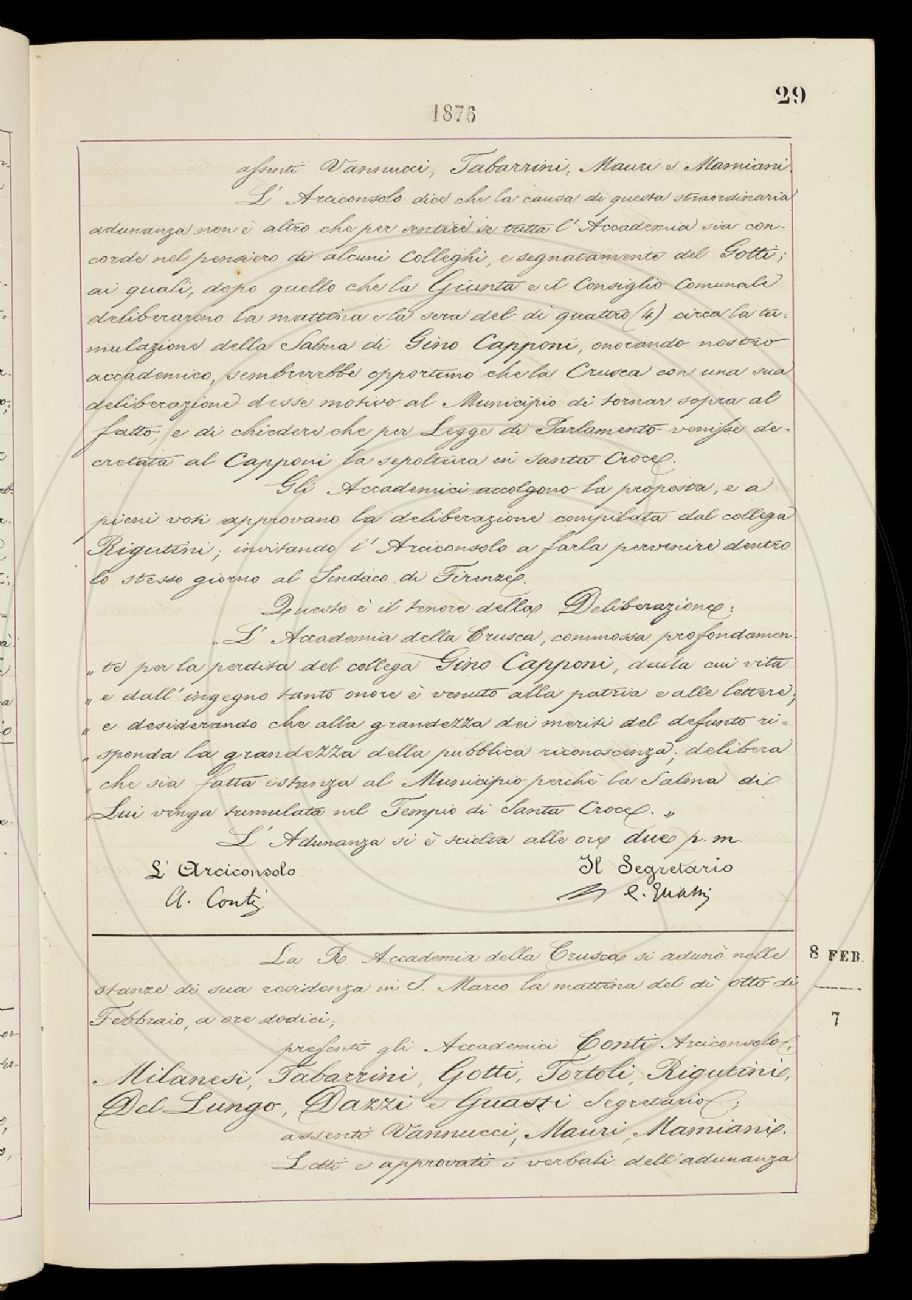 29
1876
assenti Vannucci, Tabarrini, Mauri e Mamiani.
L'Arciconsolo dice che la causa di questa straordinaria
adunanza non è altro che per sentire se tutta l'Accademia sia con-
corde nel pensiero di alcuni Colleghi, e segnatamente del Gotti;
ai quali, dopo quello che la Giunta e il Consiglio Comunale
deliberarono la mattina e la sera del dì quattro (4) circa la tu-
mulazione della Salma di Gino Capponi, onorando nostro
accademico, sembrerebbe opportuno che la Crusca con una sua
deliberazione desse motivo al Municipio di tornar sopra al
fatto, e di chiedere che per Legge di Parlamento venisse de-
cretata al Capponi la sepoltura in Santa Croce.
Gli Accademici accolgono la proposta, e a
pieni voti approvano la deliberazione compilata dal collega
Rigutini; invitando l'Arciconsolo a farla pervenire dentro
lo stesso giorno al Sindaco di Firenze.
Questo è il tenore della Deliberazione:
„L'Accademia della Crusca, commossa profondamen-
„te per la perdita del collega Gino Capponi, dalla cui vita
„e dall'ingegno tanto onore è venuto alla patria e alle lettere;
„e desiderando che alla grandezza dei meriti del defunto ri-
„sponda la grandezza della pubblica riconoscenza; delibera
„che sia fatta istanza al Municipio perchè la Salma di
„Lui venga tumulata nel Tempio di Santa Croce.„
L'Adunanza si è sciolta alle ore due p.m.
L'Arciconsolo Il Segretario
A. Conti C. Guasti
La R. Accademia della Crusca si adunò nelle
8 FEB.
stanze di sua residenza in S. Marco la mattina del dì otto di
Febbraio, a ore dodici;
7
presenti gli Accademici Conti Arciconsolo,
Milanesi, Tabarrini, Gotti, Tortoli, Rigutini,
Del Lungo, Dazzi e Guasti Segretario;
assenti Vannucci, Mauri, Mamiani.
Letti e approvati i verbali dell'adunanza